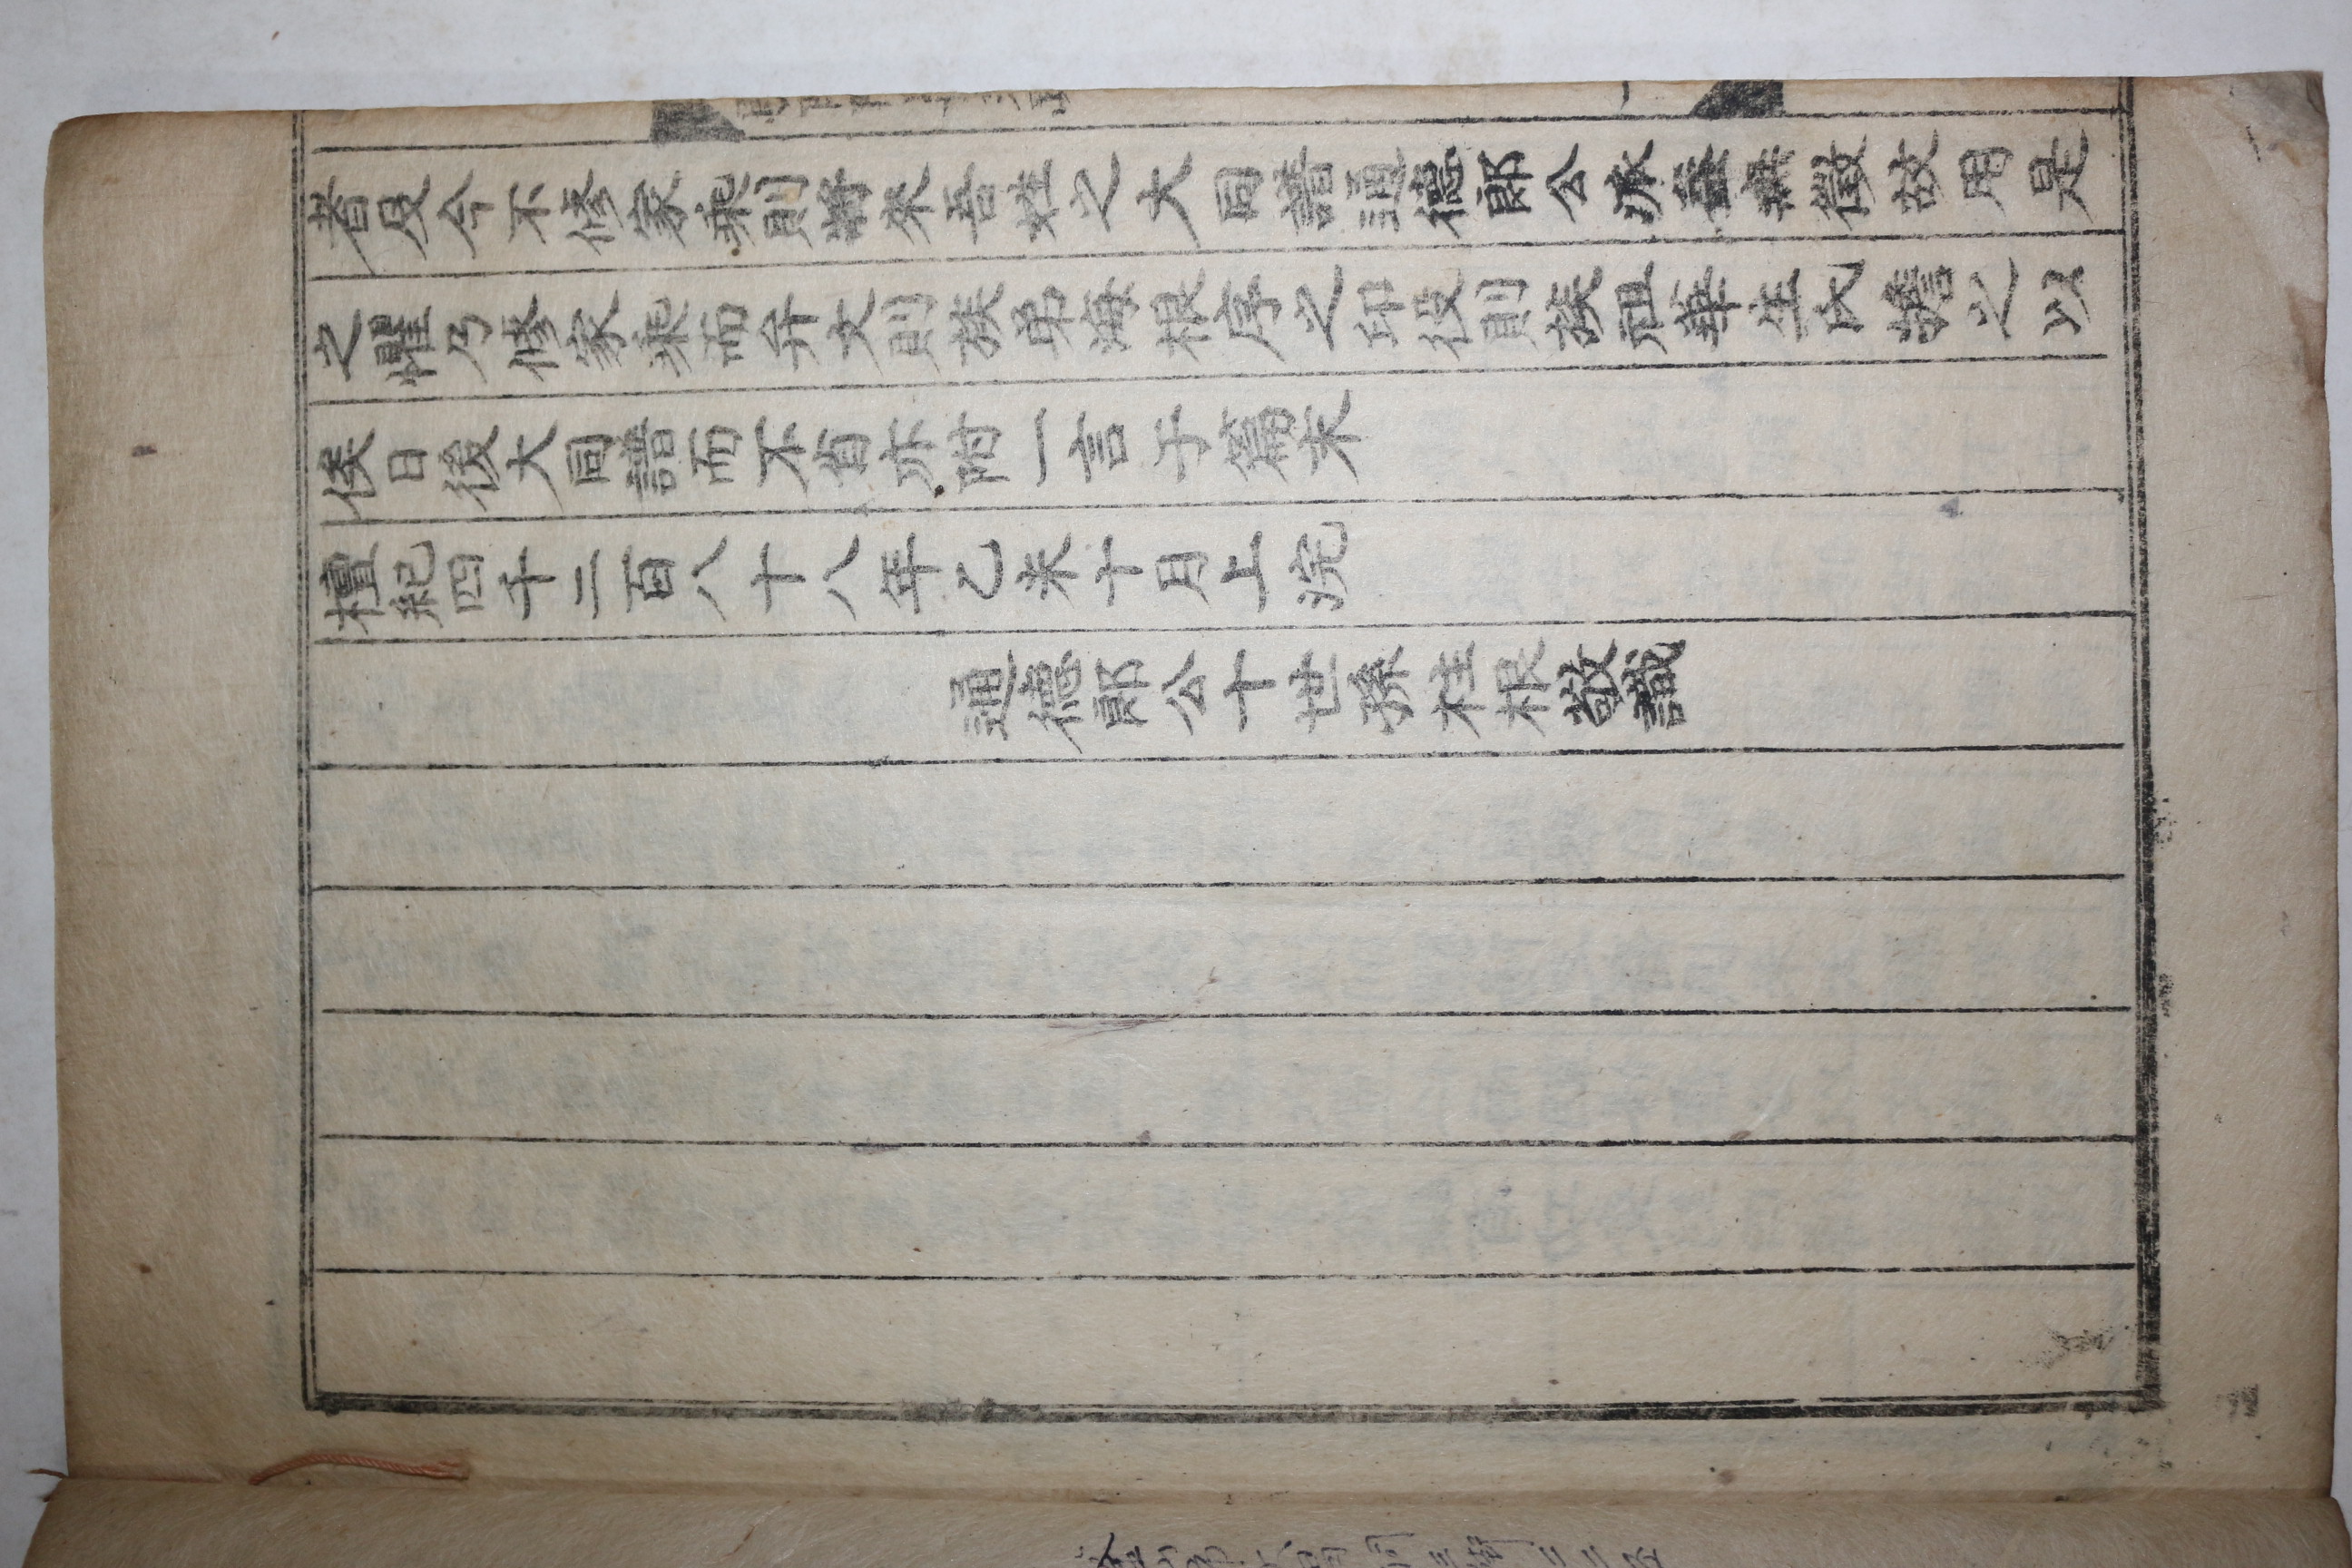 者及今不修家乘則將來吾姓之大同譜通德郎公派益無徵故用是
之懼乃修家乘而弁文則族弟海根序之印役則族祖華生氏擔之以
俟日後大同譜而不省亦附一言于篇末
檀紀四千二百八十八年乙未十月上浣
通德郎公十世孫柱根敬識